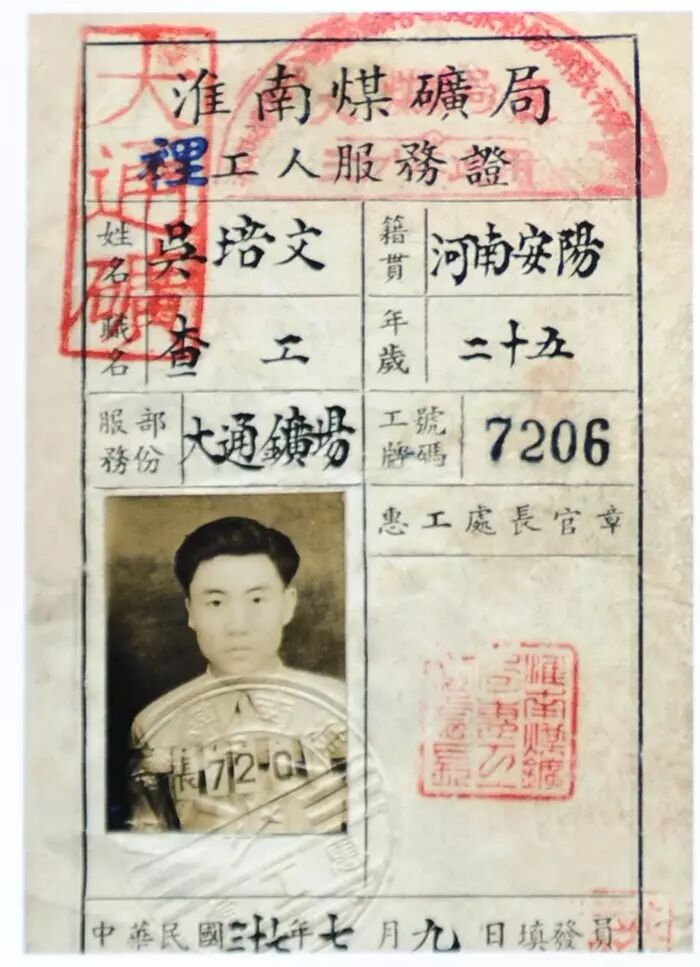 淮南煤礦局
裡工人服務證
大通礦
姓名 吳培文 籍貫 河南安陽
職名 查工 年歲 二十五
服務部份 大通鑛場 工牌號碼 7206
惠工處長官章
張720
中華民國三十七年七月九日填發員